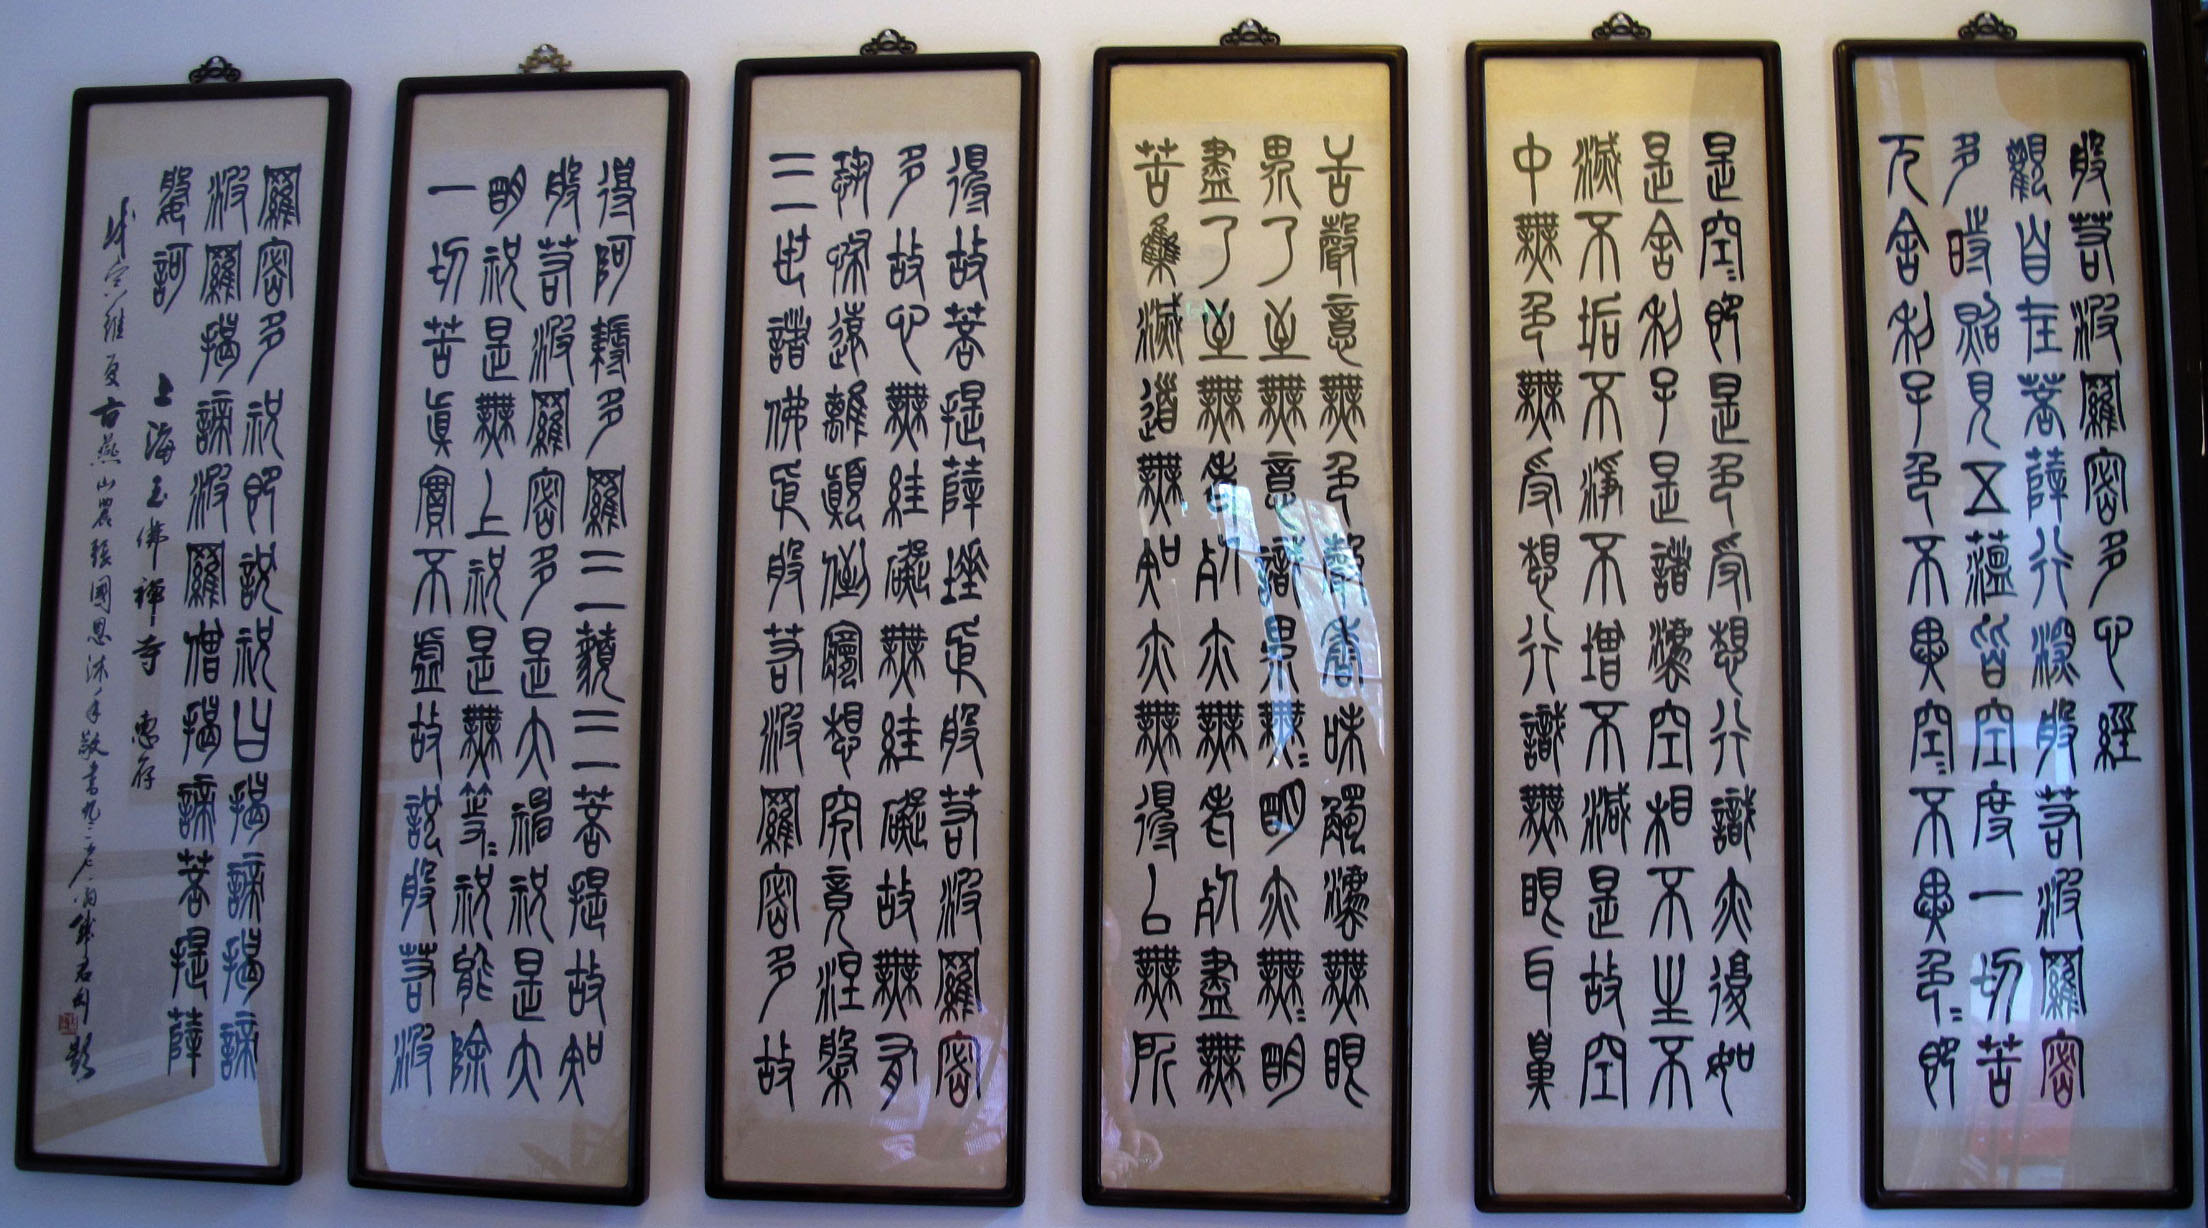 般若波羅密多心經
觀自在菩薩行深般若波羅密
多時照見五蘊皆空度一切苦
厄舍利子色不異空〻不異色〻即
是空〻即是色受想行識亦復如
是舍利子是諸灋空相不生不
滅不垢不淨不增不減是故空
中無色無受想行識無眼自鼻
舌聲意無色聲香味觸灋無眼
界乃至無意識界無〻明亦無〻明
盡乃至無老死亦無老死盡無
苦集滅道無知亦無得以無所
得故菩提薩埵依般若波羅密
多故心無罣礙無罣礙故無有
恐怖遠離顛倒夢想究竟涅槃
三世諸佛依般若波羅密多故
得阿耨多羅三藐三菩提故知
般若波羅密多是大神祝是大
明祝是無上祝是無等〻祝能除
一切苦真實不虛故說般若波
羅密多祝即說祝曰揭諦揭諦
波羅揭諦波羅僧揭諦菩提薩
婆訶
上海玉佛禪寺 惠存
維夏古燕山農張國恩沐手敬書 題